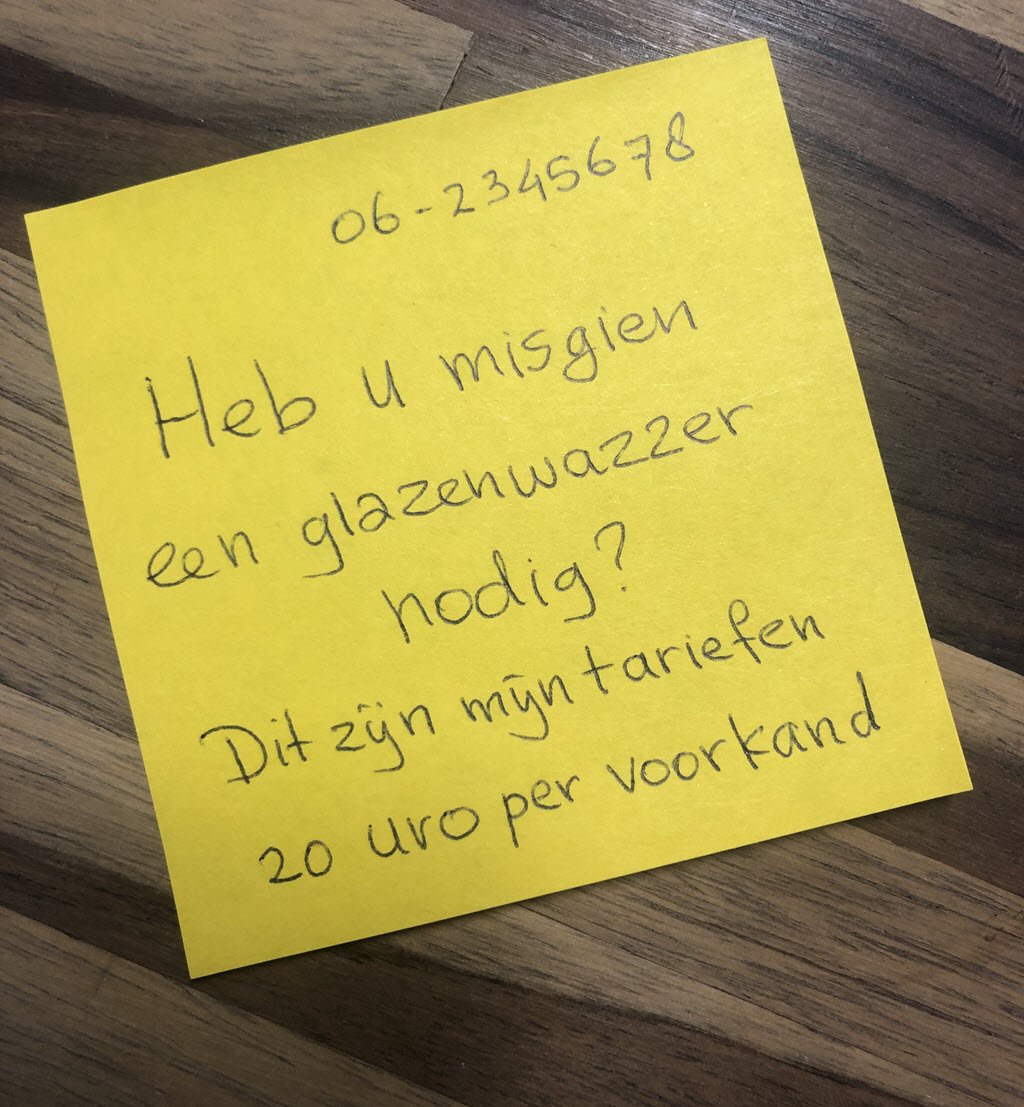 06-2345678
Heb u misgien
een glazenwazzer
nodig?
Dit zijn mijn tariefen
20 uro per voorkand